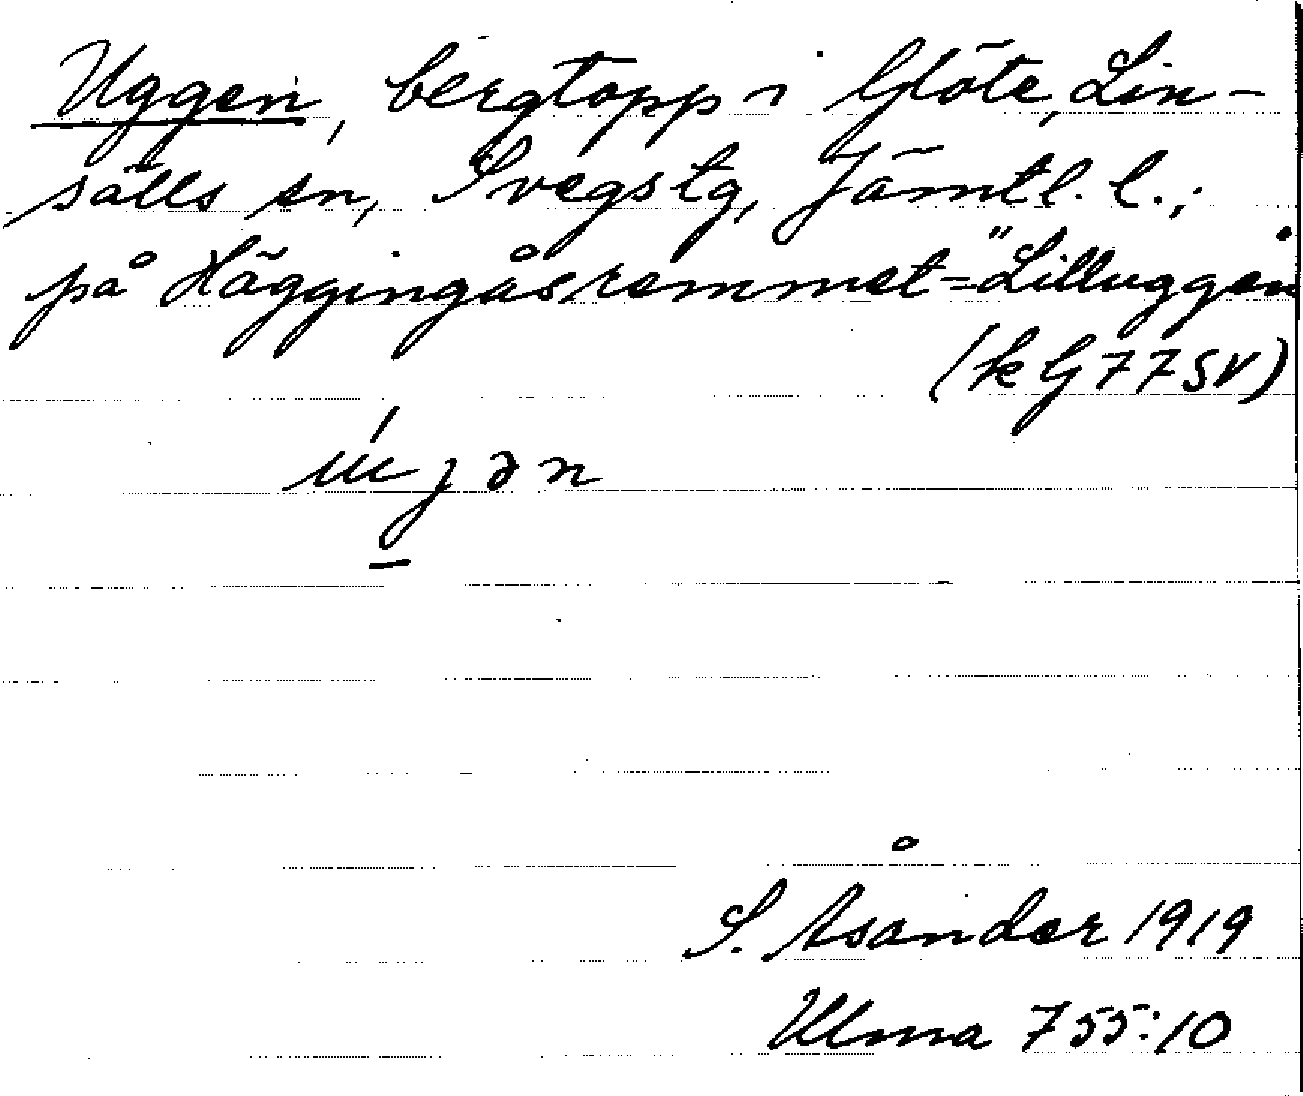 Uggen, bergtopp i Glöte, Lin-
sälls sn, Svegs tg, Jämtl. l.;
på Häggingåsremmet = "Lilluggen"
(k G 77 SV)
S. Åsander 1919
Ulma 755:10